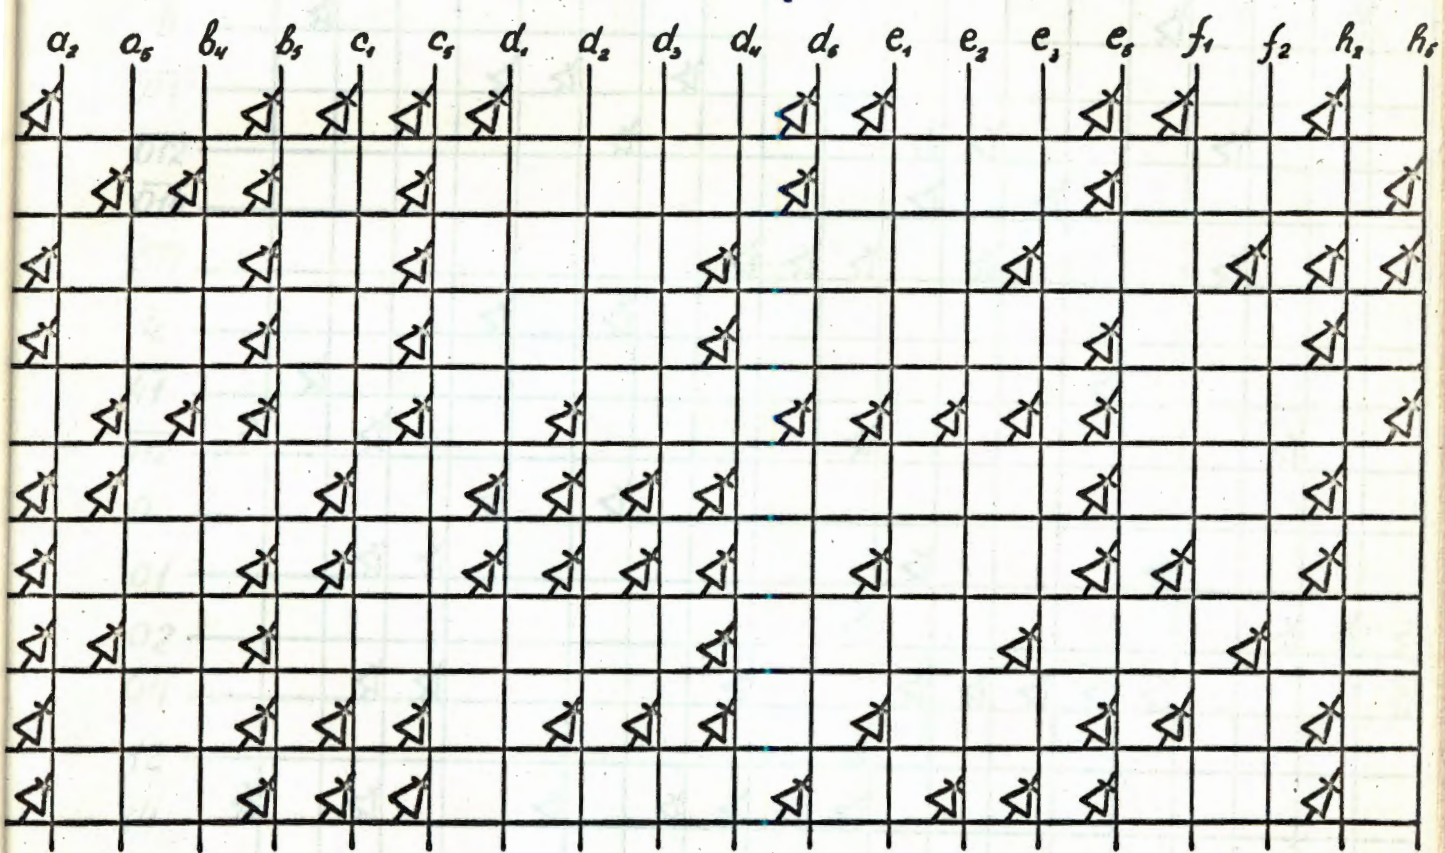 a₂ a₅ b₄ b₅ c₁ c₅ d₁ d₂ d₃ d₄ d₆ e₁ e₂ e₃ e₅ f₁ f₂ h₂ h₅